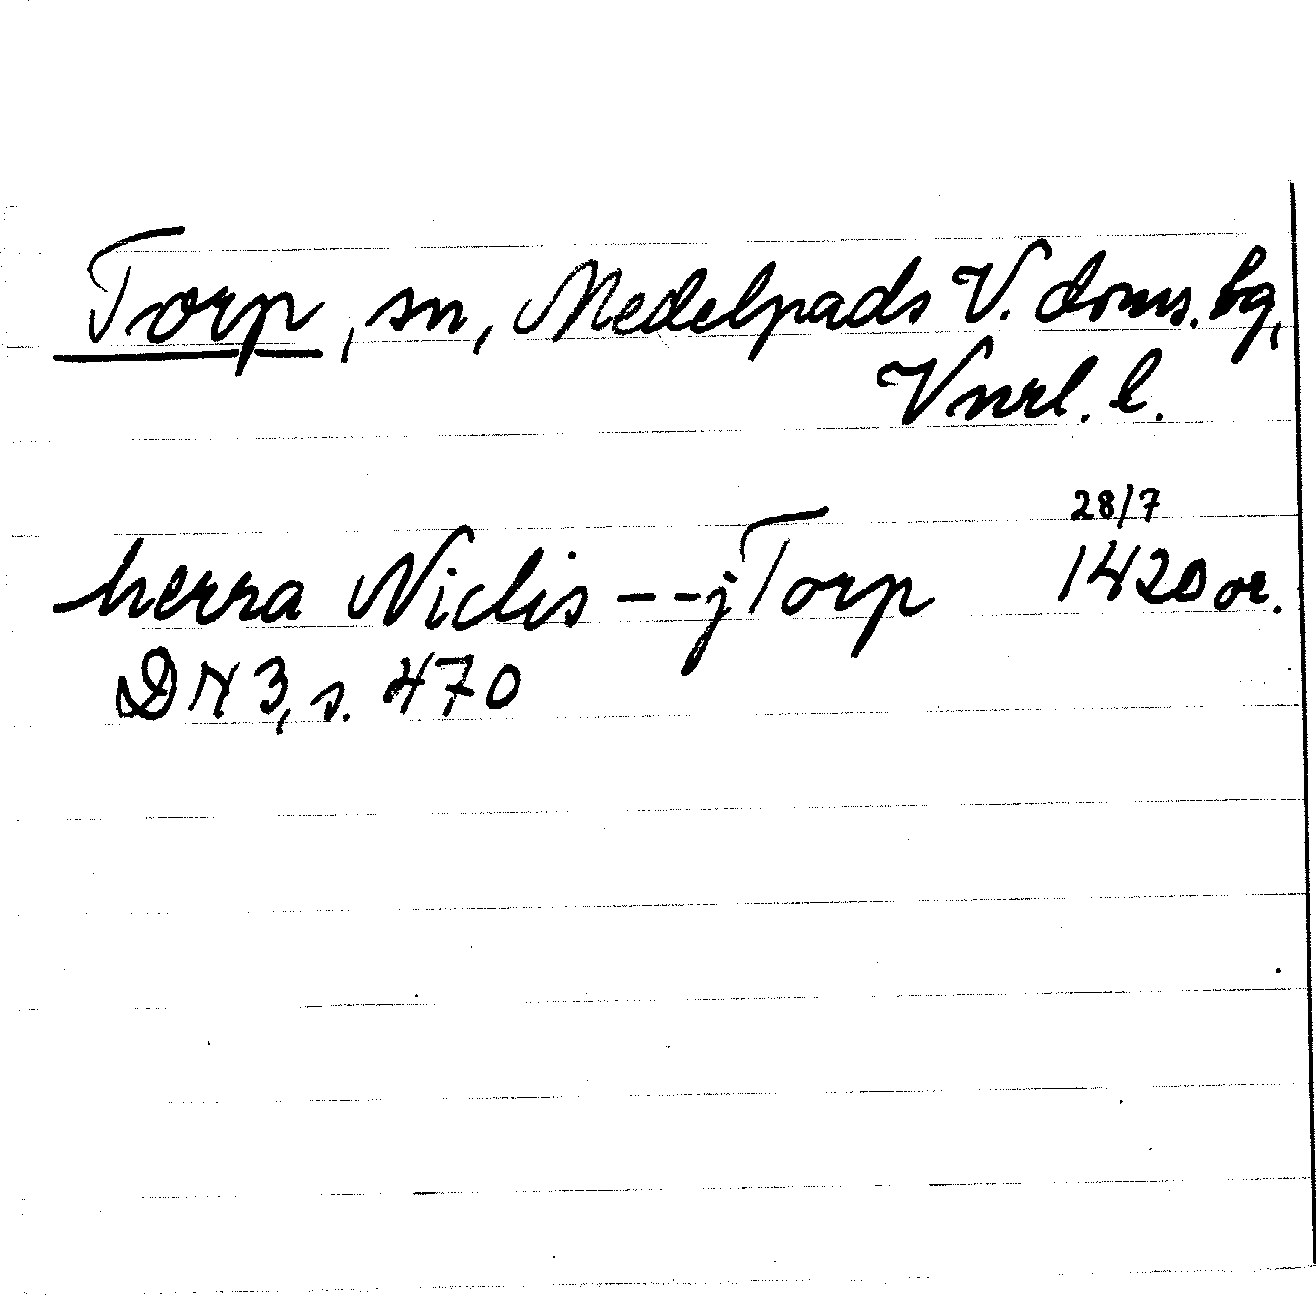 Torp, sn, Medelpads V. doms. bg,
Vnrl. l.
28/7
herra Niclis -- j Torp 1420 or.
DN 3, s. 470